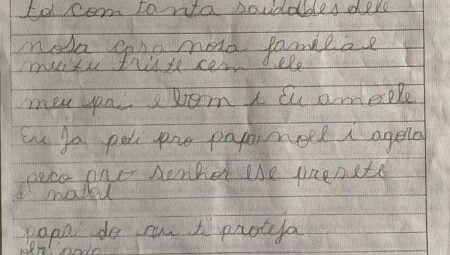 to com tanta saudades dele
nosa casa nosa familia e
muitu triste cem ele
meu pai e bom i Eu amo ele
Eu Ja pedi pro papai noel i agola
peco pro senhor ese presete
natal
papai do ceu ti proteja